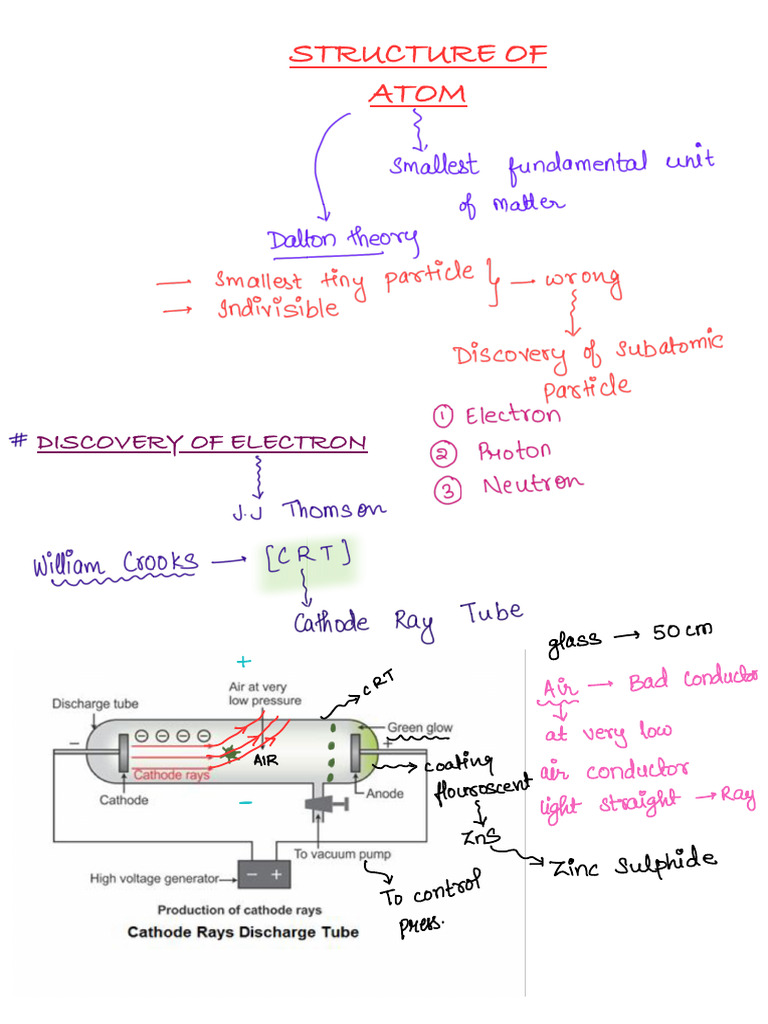 STRUCTURE OF
ATOM
Smallest fundamental unit
of matter
Dalton theory
→ Smallest tiny particle
→ Indivisible
→ wrong
Discovery of subatomic
particle
① Electron
② Proton
③ Neutron
# DISCOVERY OF ELECTRON
J.J Thomson
William Crooks → [CRT]
Cathode Ray Tube
glass → 50 cm
Air → Bad conductor
at very low
air conductor
light straight → Ray
+
Air at very
low pressure
CRT
Discharge tube
Green glow
−
+
Cathode rays
AIR
coating
flouroscent
Cathode
Anode
−
ZnS
Zinc Sulphide
To vacuum pump
High voltage generator
− +
To control
press.
Production of cathode rays
Cathode Rays Discharge Tube